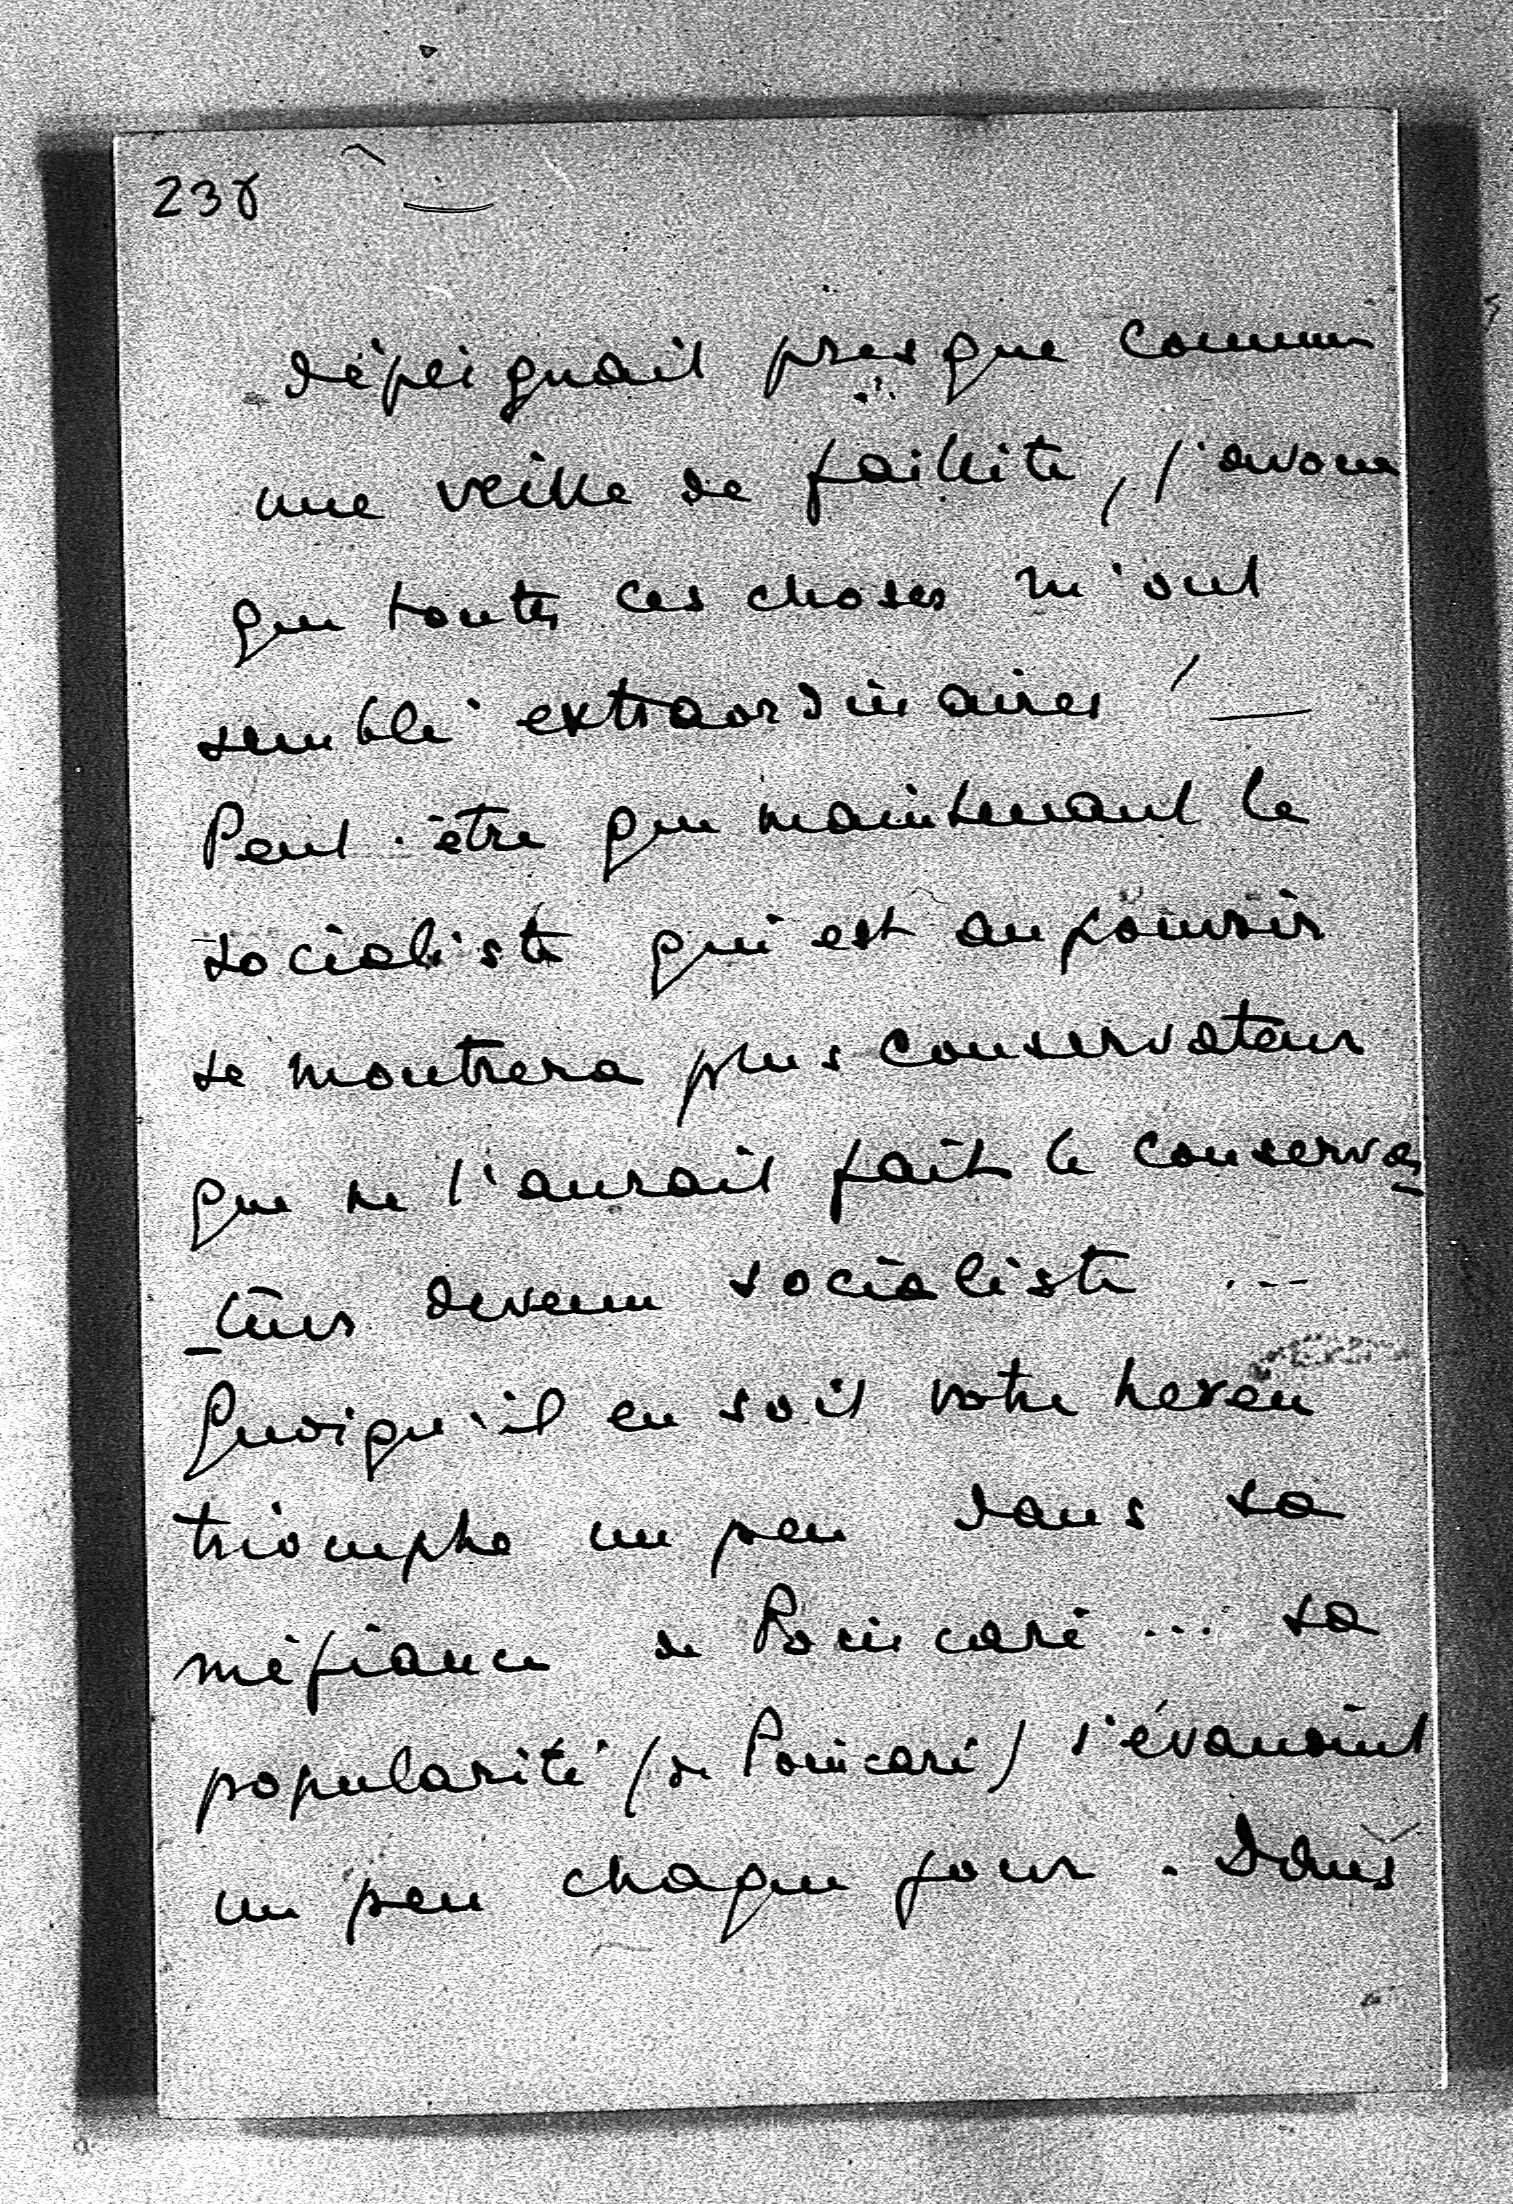 238
dépeignait presque comme
une veille de faillite, j'avoue
que toutes ces choses m'ont
semblé extraordinaires ! —
Peut-être que maintenant le
socialiste qui est au pouvoir
se montrera plus conservateur
que ne l'aurait fait le conserva_
_teur devenu socialiste ...
Quoiqu'il en soit votre neveu
triomphe un peu dans sa
méfiance de Poincaré ... sa
popularité (de Poincaré) s'évanouit
un peu chaque jour. Dans